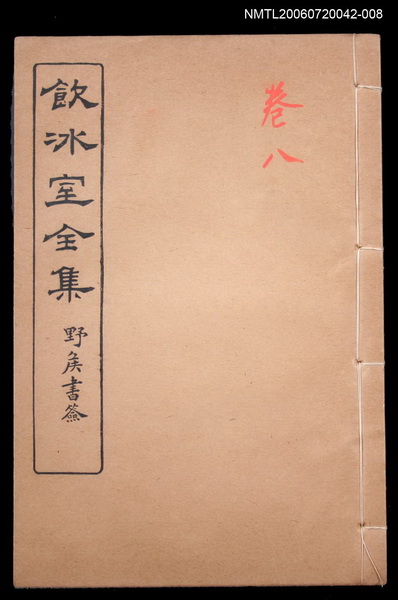 NMTL20060720042-008
卷八
飲冰室全集
野侯書簽